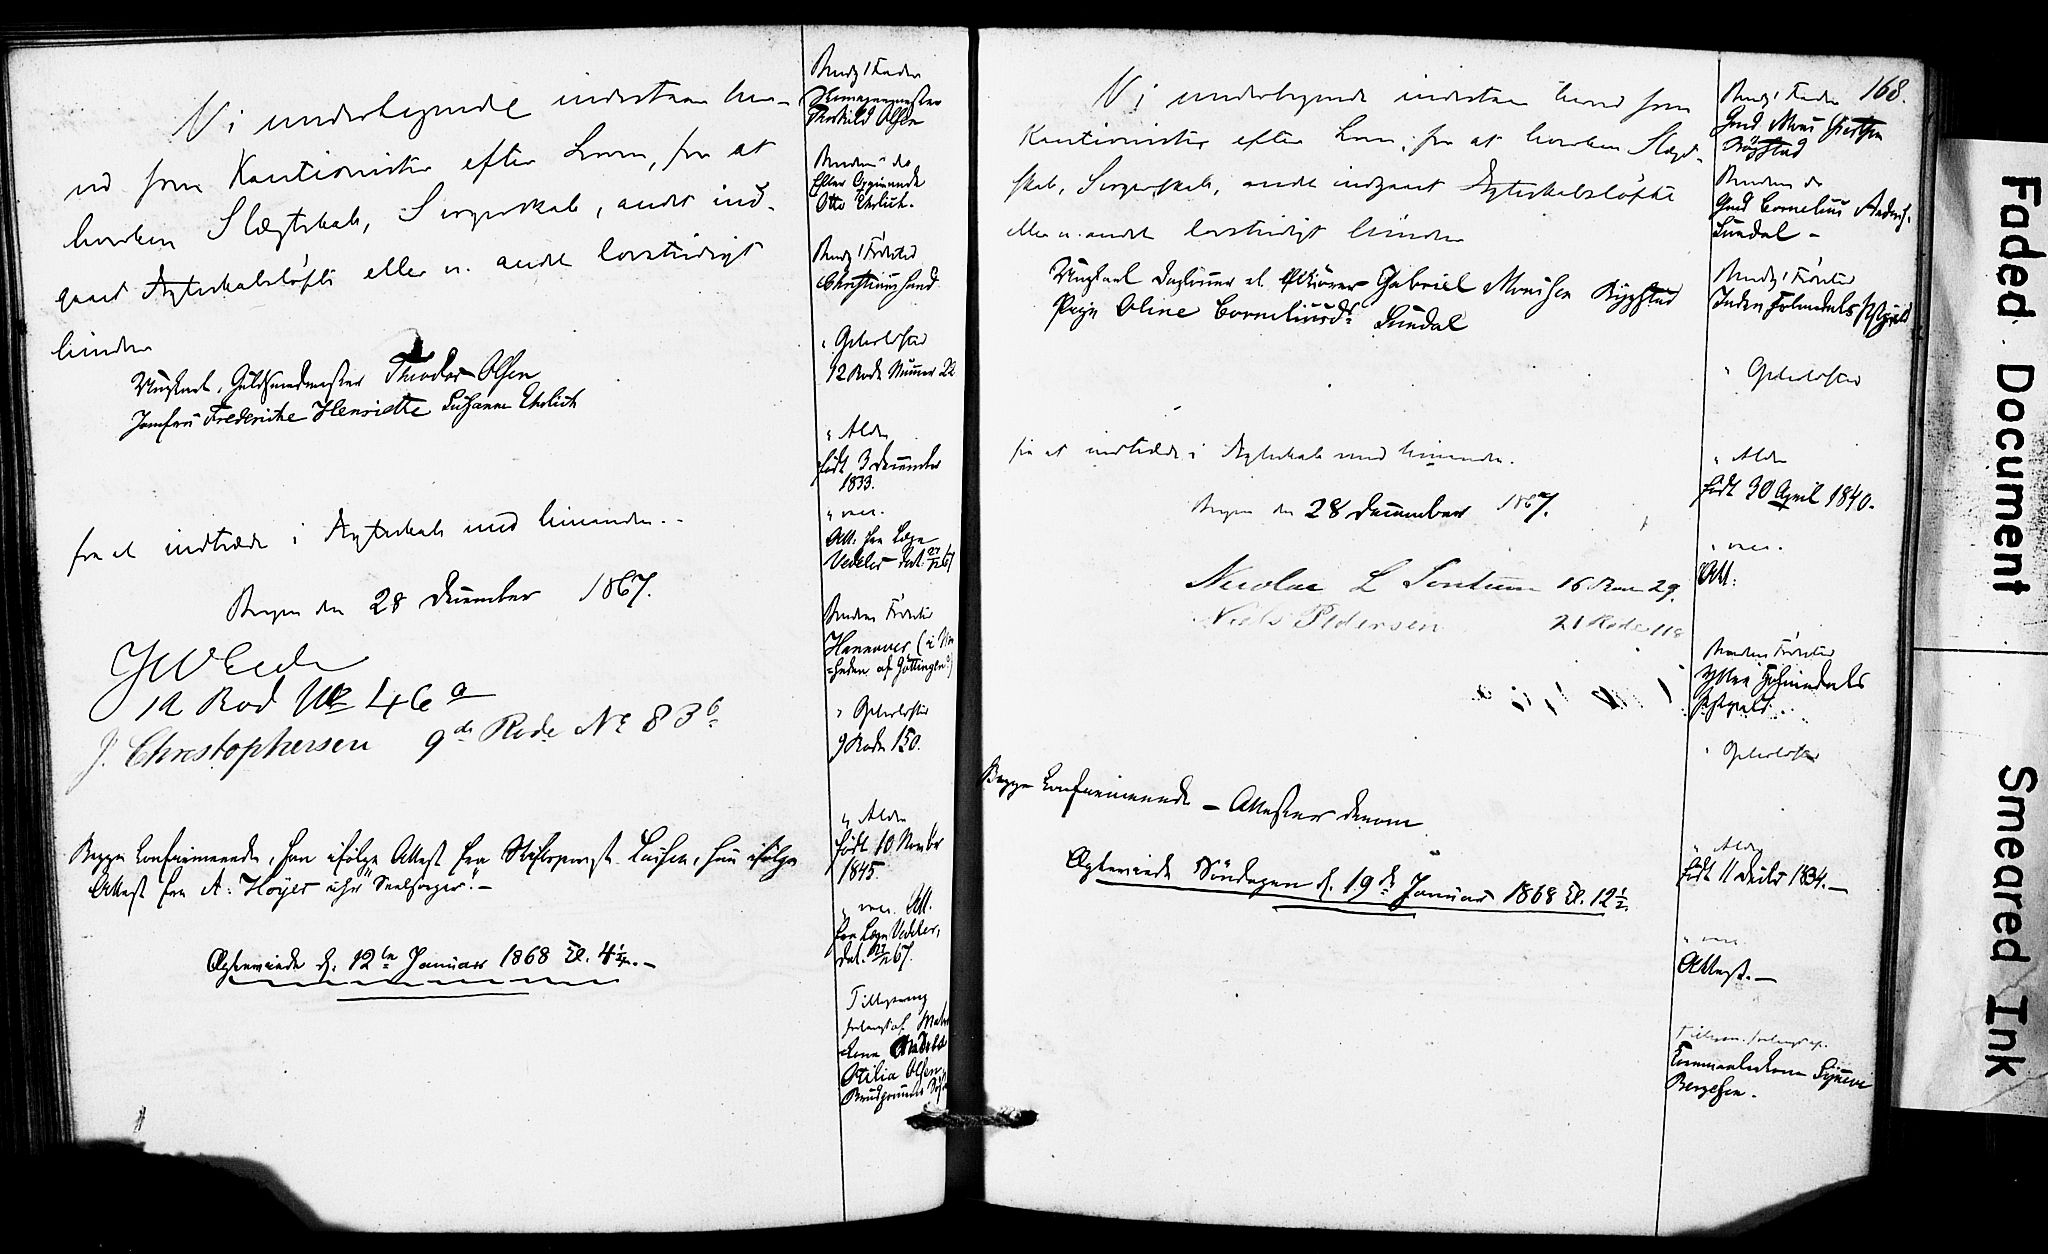 Vi undertegnede indestaae her-
ved som Kautionister efter Loven, for at
hverken Slægtskab, Svogerskab, andet ind-
gaaet Ægteskabsløfte eller n. andet lovstridigt
hindrer
Ungkarl, Guldsmedmester Theodor Olsen
Jomfru Frederikke Henriette Susanne Ehrlich
for at indtræde i Ægteskab med hinanden.-
Bergen den 28 December 1867.
12 Rod No 46 a
J. Christophersen 9de Rode No 83 b
Begge Confirmerede, han ifølge Attest fra Stiftsprovst, hun ifølge
Attest fra A. Høyer "Seelsorger".-
Ægteviede d. 12te Januar 1868 Kl. 4½.-
Brudg. Fader
Thorkild Olsen
Brudens do
Efter Opgivende
Otto Ehrlich.
Brudg. Fødested
Christianssund
" Opholdssted
12 Rode Numer 22
" Alder
født 3 December
1833.
" vacc.
Att. fra Læge
Vedeler dat. 27/12 67
Brudens Fødested
Hannover (i Nær-
heden af Göttingen)
" Opholdssted
9 Rode 150.
" Alder
født 10 Novbr
1845.
" vacc. Att.
fra Læge Vedeler,
dat. 27/12 67.
Tillysning
forlangt af
Otilia Olsen
Brudgommens
168.
Vi undertegnede indestaae herved som
Kautionister efter Loven, for at hverken Slægt-
skab, Svogerskab, andet indgaaet Ægteskabsløfte
eller n. andet lovstridigt hindrer
Ungkarl Gabriel Monsen Rygstad
Pige Oline Corneliusd. Sundal
for at indtræde i Ægteskab med hinanden.
Bergen den 28 December 1867.
Nicolai L Sontum 16 Rode 29.
Niels Pedersen 21 Rode 118
Begge Confirmerede - Attester derom
Ægteviede Søndagen d. 19de Januar 1868 Kl. 12½.
Brudg. Fader
Gmd Mons
Rygstad
Brudens do
Gmd Cornelius Anders.
Sundal -
Brudg. Fødested
Indre Holmedals Præstegjeld
" Opholdssted
" Alder
født 30 April 1840.
" vacc.
Att:
Brudens Fødested
Ytre Holmedals
Præstegjeld.
" Opholdssted
" Alder
født 11 Decbr 1834.-
" vacc
Attest.-
Tillysn. forlangt af
Synneve
Bergesen.
Faded Document
Smeared Ink